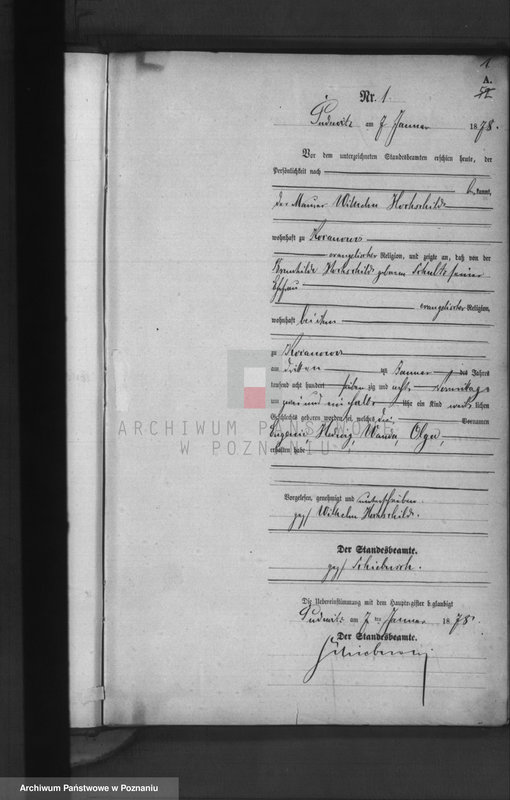 1
A.
Nr. 1
Pudewitz am 7 Januar 1878.
Vor dem unterzeichneten Standesbeamten erschien heute, der
Persönlichkeit nach
be kannt,
der Maurer Wilhelm
wohnhaft zu
evangelischer Religion, und zeigte an, daß von der
geborenen Schultz seiner
Ehefrau
evangelischer Religion,
wohnhaft bei ihm
zu
am dritten ten Januar des Jahres
tausend acht hundert sieben zig und acht
um zwei und ein halb Uhr ein Kind weib lichen
Geschlechts geboren worden sei, welches die Vornamen
Hedwig, Wanda, Olga,
erhalten habe
Vorgelesen, genehmigt und unterschrieben
gez/ Wilhelm
Der Standesbeamte.
gez/
Die Uebereinstimmung mit dem Hauptregister beglaubigt
Pudewitz am 7 ten Januar 1878.
Der Standesbeamte.
ARCHIWUM PAŃSTWOWE
W POZNANIU
Archiwum Państwowe w Poznaniu